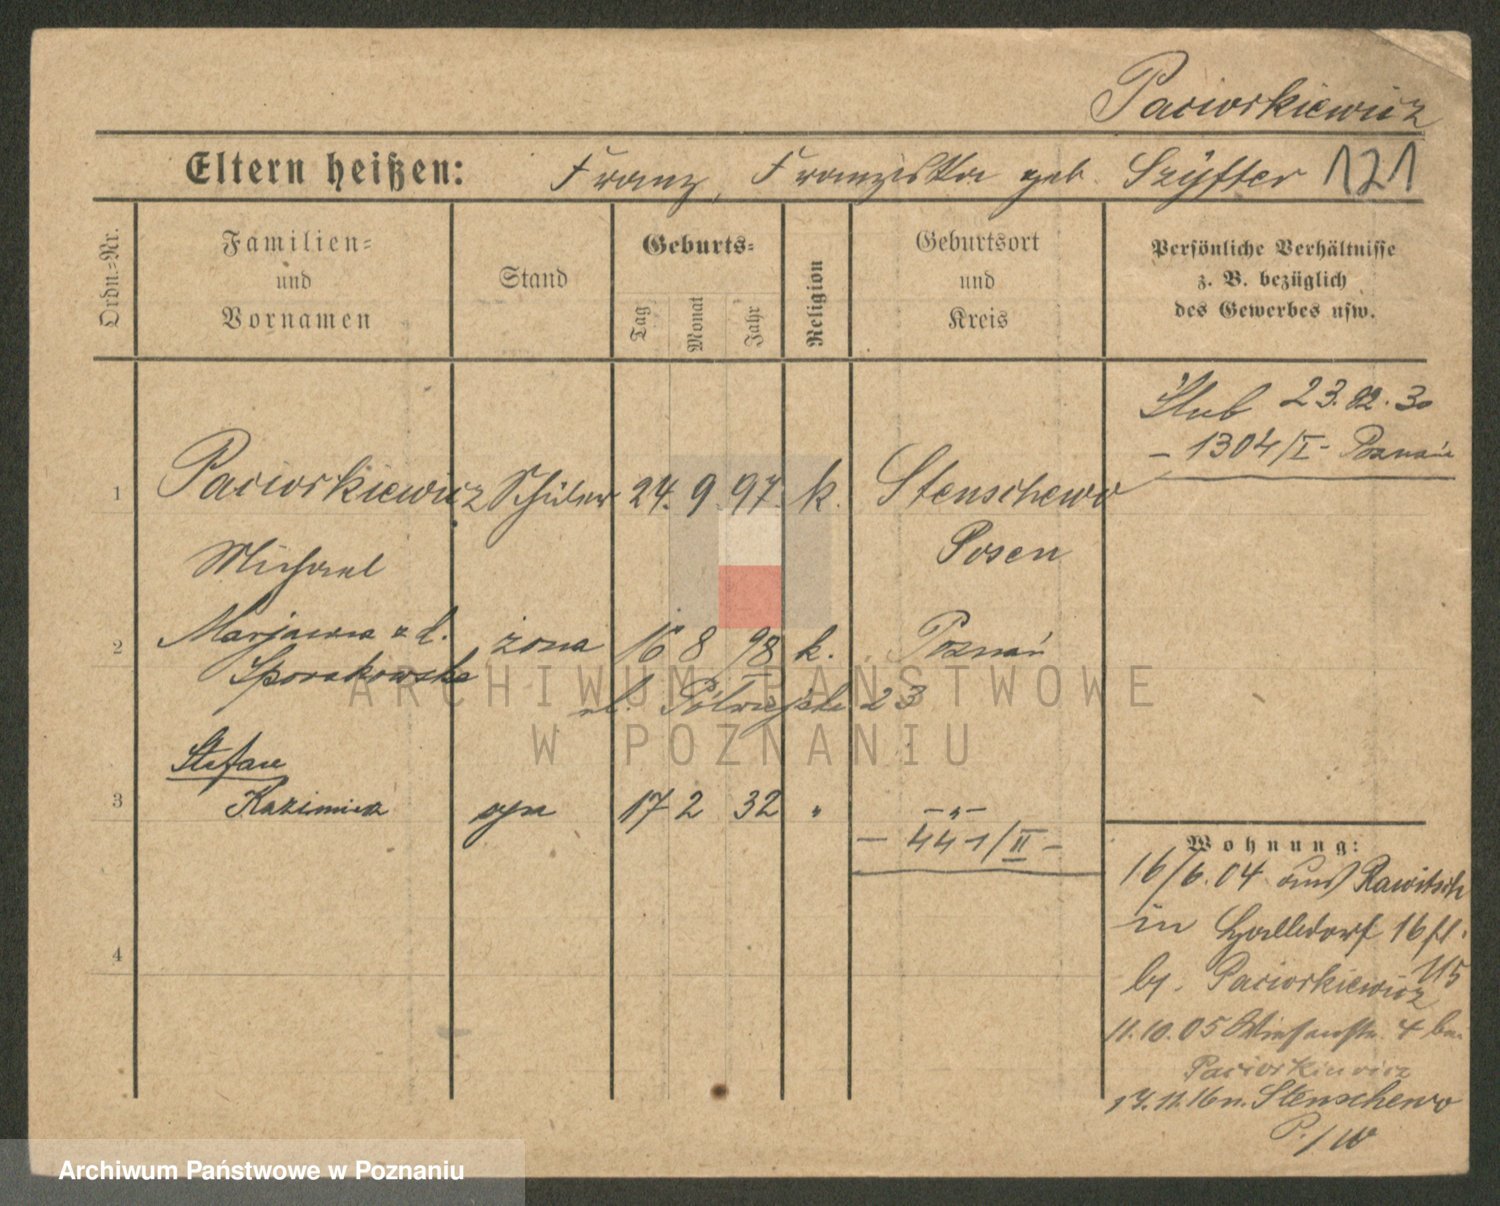 Paciorkiewicz
Eltern heißen: Franz, Franziska geb. Szyfter 121
Ordn.=Nr.
Familien=
und
Vornamen
Stand
Geburts=
Tag
Monat
Jahr
Religion
Geburtsort
und
Kreis
Persönliche Verhältnisse
z. B. bezüglich
des Gewerbes usw.
Ślub 23.02.30
- 1304/I - Poznań
1 Paciorkiewicz Schüler 24. 9. 97. k. Stenschewo
Michael Posen
2 Marjanna z d. żona 16 8 98 k. Poznań
Sporakowska
ul. Półwiejska 23
Stefan
3 Kazimierz syn 17 2 32 " -"-
- 441/II -
4
Wohnung:
16/6.04 aus Rawitsch
in Halldorf 16 fl.
bj. Paciorkiewicz U5
11.10.05 Wiesenstr. 4 bei
Paciorkiewicz
17.11.16 n. Stenschewo
P./W
ARCHIWUM PAŃSTWOWE
W POZNANIU
Archiwum Państwowe w Poznaniu